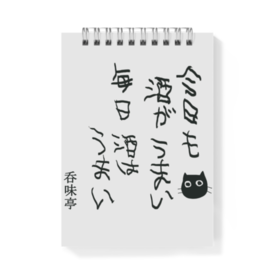 今日も
酒が うまい
毎日 酒は
うまい
呑味亭